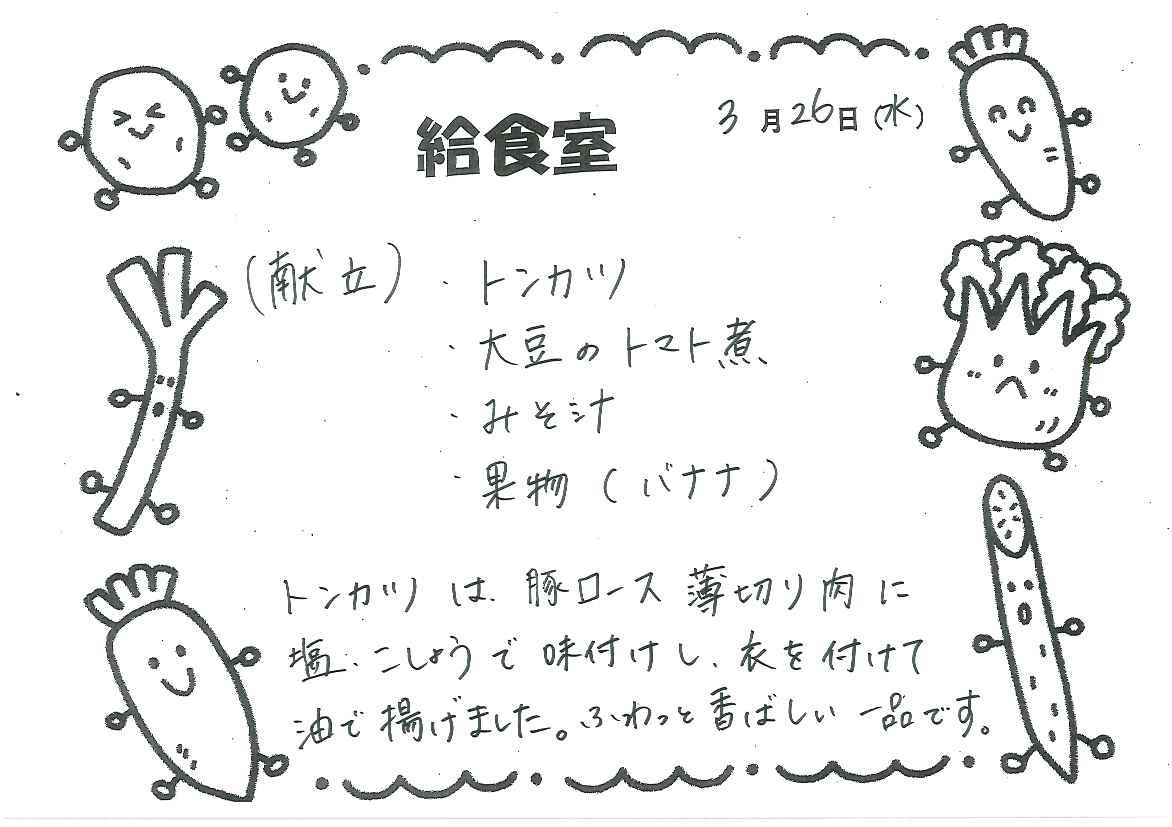 3月26日(水)
給食室
(献立)・トンカツ
・大豆のトマト煮
・みそ汁
・果物(バナナ)
トンカツは、豚ロース薄切り肉に
塩、こしょうで味付けし、衣を付けて
油で揚げました。ふわっと香ばしい一品です。